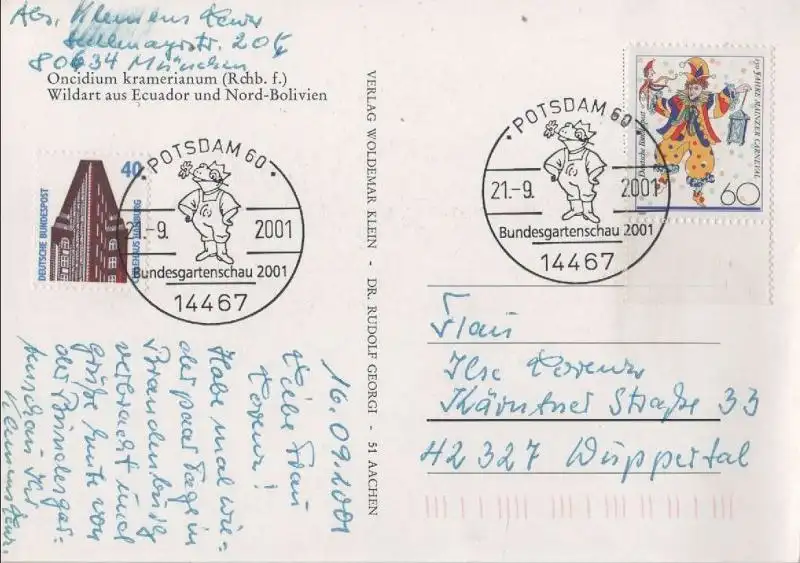 Abs. Klemens
80634 München
Oncidium kramerianum (Rchb. f.)
Wildart aus Ecuador und Nord-Bolivien
40
DEUTSCHE BUNDESPOST
CHILEHAUS HAMBURG
POTSDAM 60
21.-9. 2001
Bundesgartenschau 2001
14467
VERLAG WOLDEMAR KLEIN - DR. RUDOLF GEORGI - 51 AACHEN
POTSDAM 60
21.-9. 2001
Bundesgartenschau 2001
14467
150 JAHRE MAINZER CARNEVAL
Deutsche Bundespost
60
16.09.2001
Liebe Frau
Lorenz!
Habe mal wie=
der paar Tage in
Brandenburg
verbracht und
grüße heute von
der Bundesgar-
tenschau Ihr
Klemens
Frau
Ilse Lorenz
Kärntner Straße 33
42327 Wuppertal